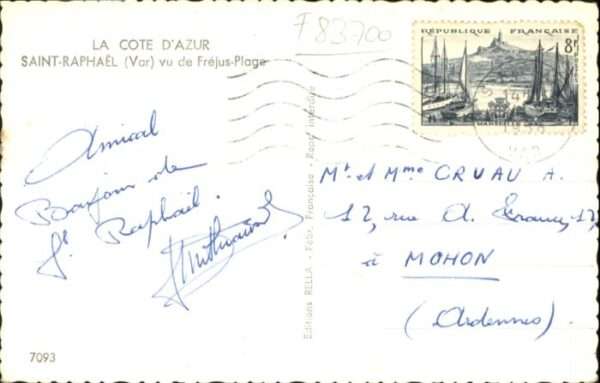 F83700
LA COTE D'AZUR
SAINT-RAPHAËL (Var) vu de Fréjus-Plage
RÉPUBLIQUE FRANÇAISE
8F
POSTES
MARSEILLE
Amical
Bonjour de
St Raphaël.
Mr et Mme CRUAU A.
12, rue A.
à MOHON
(Ardennes)
Editions RELLA - Fabr. Française - Repr. Interdite
7093